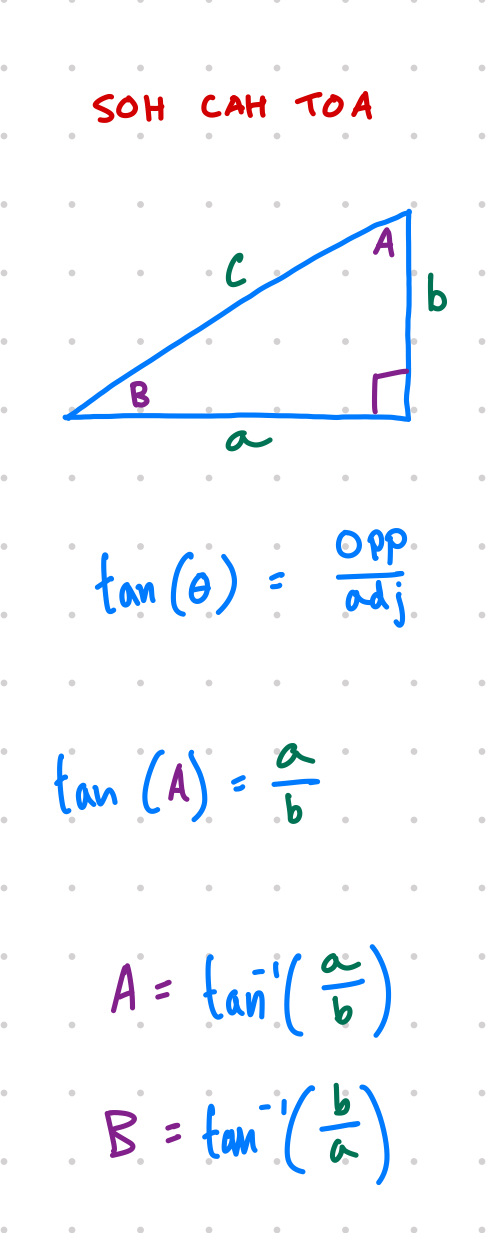 SOH CAH TOA
A
c
b
B
a
tan (θ) = opp/adj
tan (A) = a/b
A = tan⁻¹(a/b)
B = tan⁻¹(b/a)